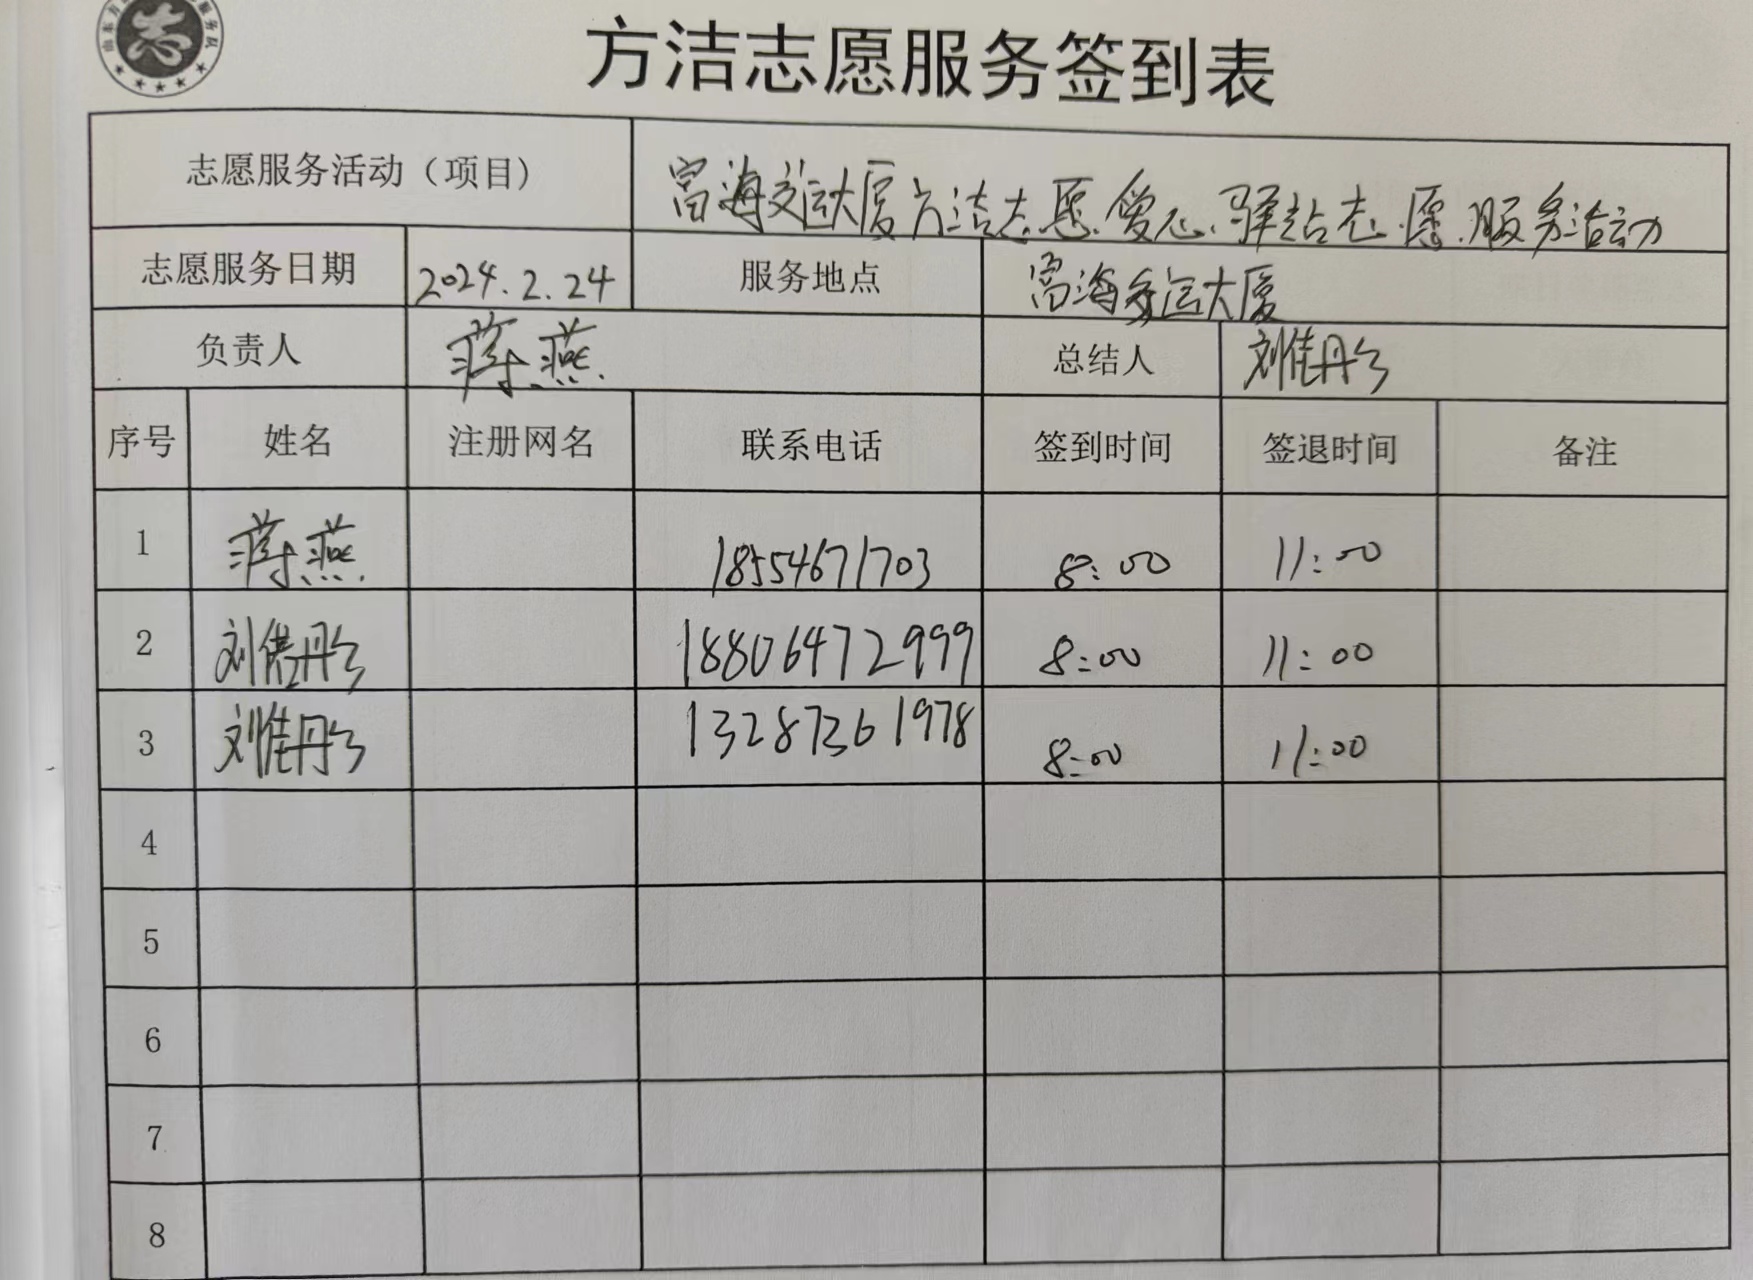 方洁志愿服务签到表
志愿服务活动（项目） 富海交运大厦方洁志愿爱心驿站志愿服务活动
志愿服务日期 2024.2.24 服务地点 富海交运大厦
负责人 蒋燕 总结人 刘佳丹
序号 姓名 注册网名 联系电话 签到时间 签退时间 备注
1 蒋燕 18554671703 8:00 11:00
2 刘 丹 18806472999 8:00 11:00
3 刘佳丹 13287361978 8:00 11:00
4
5
6
7
8